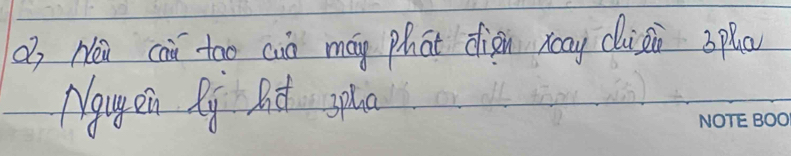 2, Nêu cấu tạo của máy phát điện xoay chiều 3pha
Nguyên lý hđ 3pha
NOTE BOO